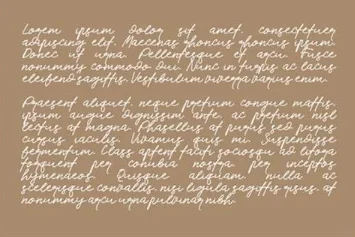 Lorem ipsum dolor sit amet, consectetuer
adipiscing elit. Maecenas rhoncus rhoncus ipsum.
Donec ut urna. Pellentesque et arcu. Fusce
nonummy commodo dui. Nunc in turpis ac lacus
eleifend sagittis. Vestibulum viverra varius enim.
Praesent aliquet, neque pretium congue mattis,
ipsum augue dignissim ante, ac pretium nisl
lectus at magna. Phasellus at purus sed purus
cursus iaculis. Vivamus quis mi. Suspendisse
fermentum. Class aptent taciti sociosqu ad litora
torquent per conubia nostra per inceptos
hymenaeos. Quisque aliquam nulla ac
scelerisque convallis, nisi ligula sagittis risus, at
nonummy arcu urna pulvinar nibh.